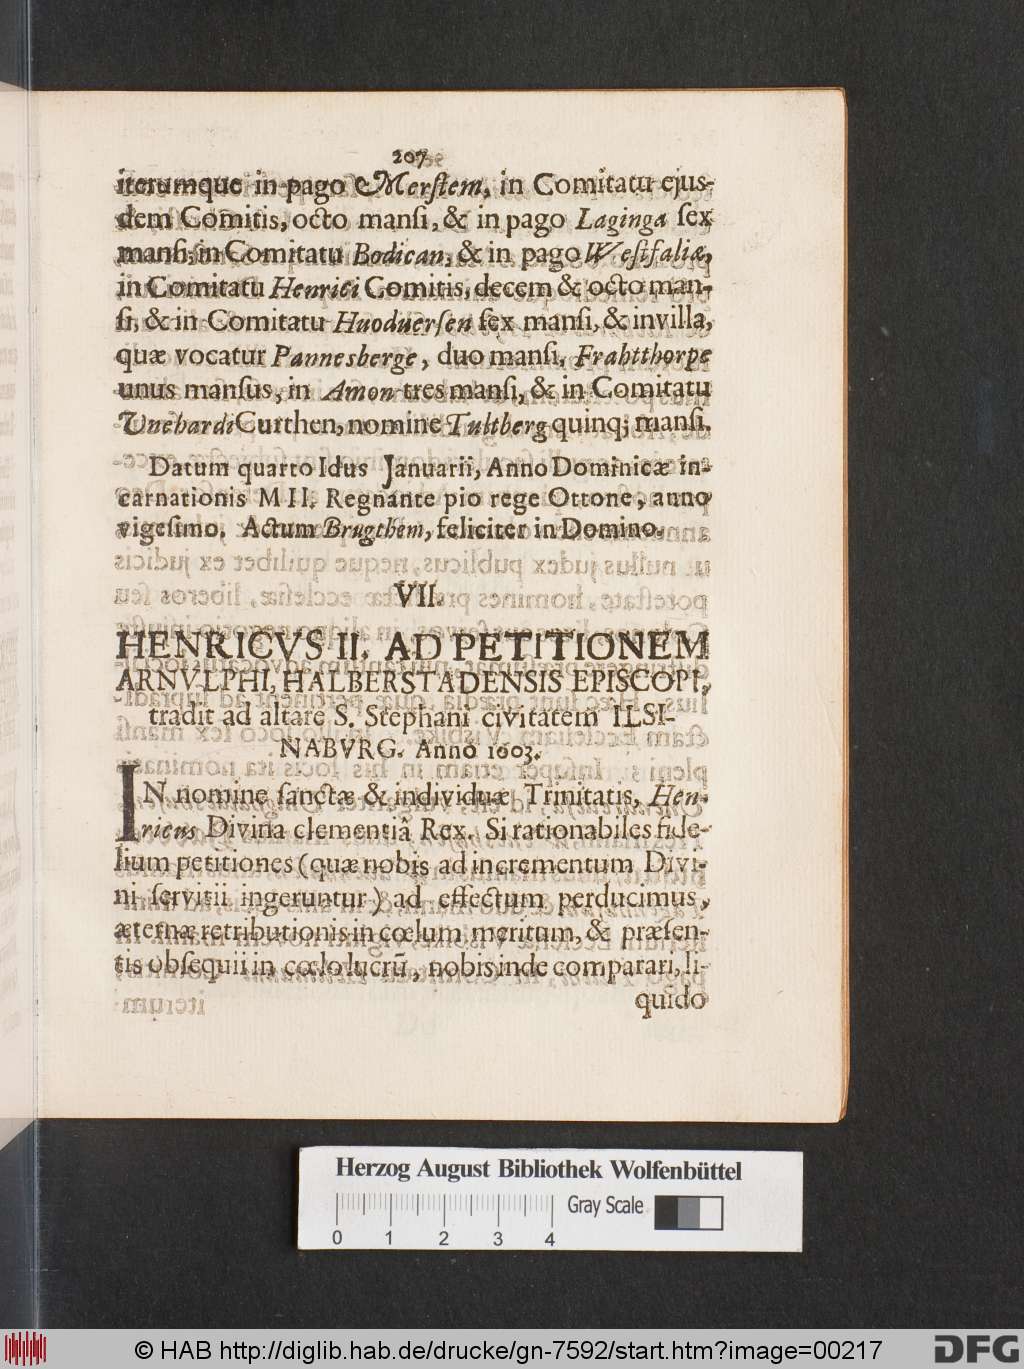 207
iterumque in pago Merſtem, in Comitatu ejus-
dem Comitis, octo manſi, & in pago Laginga ſex
manſi, in Comitatu Bodican, & in pago Weſtfaliæ,
in Comitatu Henrici Comitis, decem & octo man-
ſi, & in Comitatu Huoduerſen ſex manſi, & in villa,
quæ vocatur Pannesberge, duo manſi, Frahtthorpe
unus manſus, in Amon tres manſi, & in Comitatu
Unehardi Curthen, nomine Tultberg quinq; manſi.
Datum quarto Idus Januarii, Anno Dominicæ in-
carnationis MII. Regnante pio rege Ottone, anno
vigeſimo. Actum Brugthem, feliciter in Domino.
VII.
HENRICVS II. AD PETITIONEM
ARNVLPHI, HALBERSTADENSIS EPISCOPI,
tradit ad altare S. Stephani civitatem ILSI-
NABVRG. Anno 1003.
IN nomine ſanctæ & individuæ Trinitatis, Hen-
ricus Divina clementiâ Rex. Si rationabiles fide-
lium petitiones (quæ nobis ad incrementum Divi-
ni ſervitii ingeruntur) ad effectum perducimus,
æternæ retributionis in cœlum meritum, & præſen-
tis obſequii in cœlo lucrū, nobis inde comparari, li-
quido
Herzog August Bibliothek Wolfenbüttel
0 1 2 3 4 Gray Scale
© HAB http://diglib.hab.de/drucke/gn-7592/start.htm?image=00217
DFG